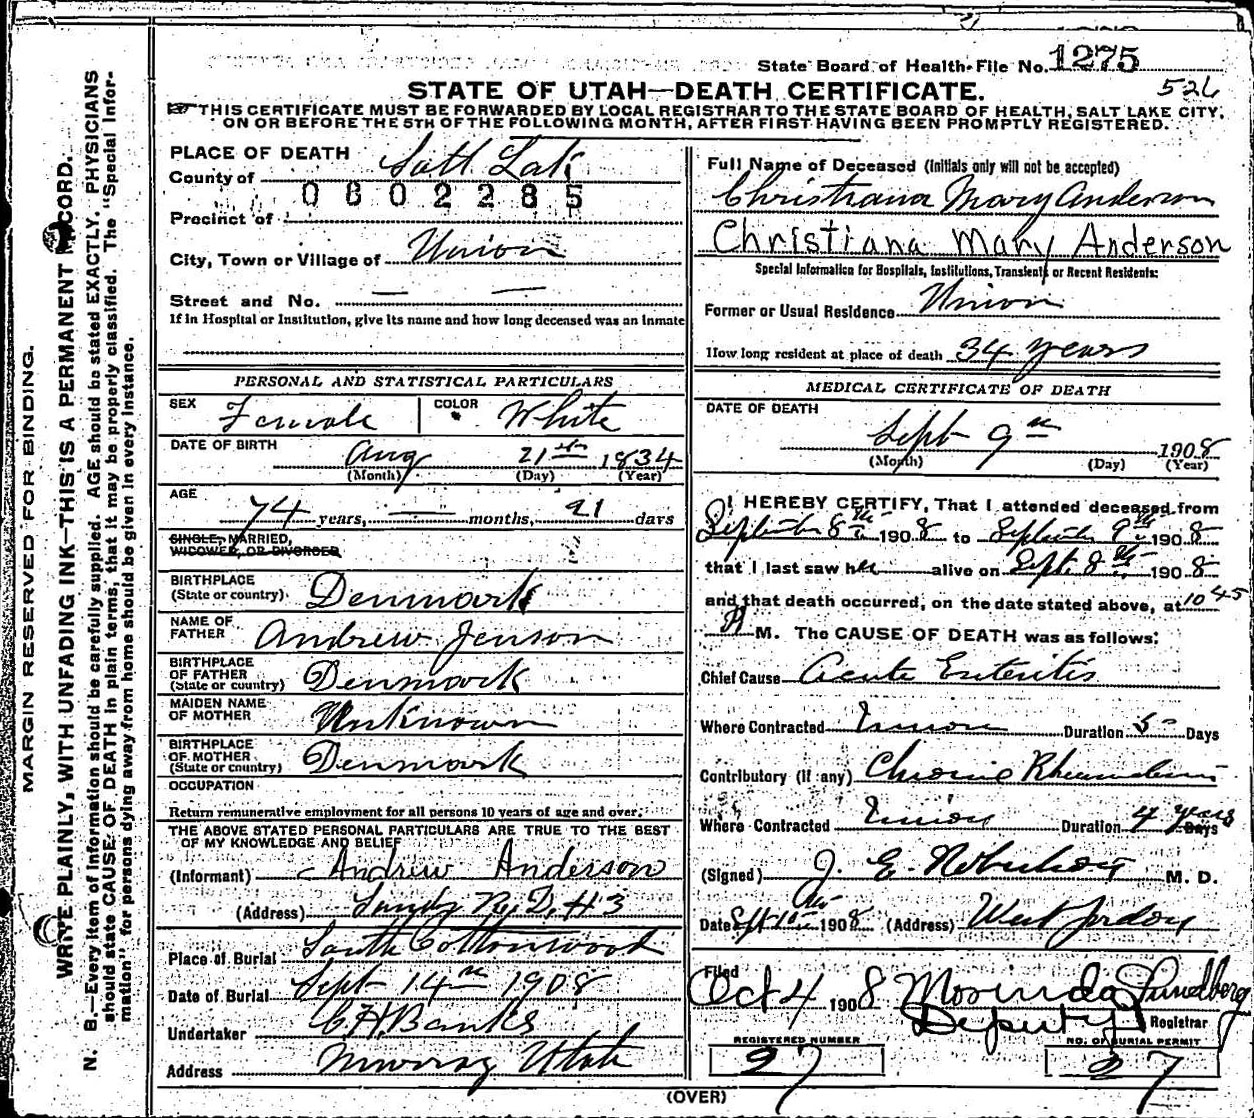 State Board of Health-File No. 1275
526
STATE OF UTAH—DEATH CERTIFICATE.
THIS CERTIFICATE MUST BE FORWARDED BY LOCAL REGISTRAR TO THE STATE BOARD OF HEALTH, SALT LAKE CITY,
ON OR BEFORE THE 5TH OF THE FOLLOWING MONTH, AFTER FIRST HAVING BEEN PROMPTLY REGISTERED.
MARGIN RESERVED FOR BINDING.
WRITE PLAINLY, WITH UNFADING INK—THIS IS A PERMANENT RECORD.
N. B.—Every item of information should be carefully supplied. AGE should be stated EXACTLY. PHYSICIANS
should state CAUSE OF DEATH in plain terms, that it may be properly classified. The "Special Infor-
mation" for persons dying away from home should be given in every instance.
PLACE OF DEATH
County of Salt Lake
0602285
Precinct of
City, Town or Village of Union
Street and No. — —
If in Hospital or Institution, give its name and how long deceased was an inmate
PERSONAL AND STATISTICAL PARTICULARS
SEX Female COLOR White
DATE OF BIRTH Aug 21st 1834
(Month) (Day) (Year)
AGE
74 years, — months, 21 days
SINGLE, MARRIED,
WIDOWED, OR DIVORCED
BIRTHPLACE
(State or country) Denmark
NAME OF
FATHER Andrew Jenson
BIRTHPLACE
OF FATHER
(State or country) Denmark
MAIDEN NAME
OF MOTHER Unknown
BIRTHPLACE
OF MOTHER
(State or country) Denmark
OCCUPATION
Return remunerative employment for all persons 10 years of age and over.
THE ABOVE STATED PERSONAL PARTICULARS ARE TRUE TO THE BEST
OF MY KNOWLEDGE AND BELIEF
(Informant) Andrew Anderson
(Address) Sandy R.D. #3
Place of Burial South Cottonwood
Date of Burial Sept 14th 1908
Undertaker C.H. Banks
Address Murray Utah
Full Name of Deceased (Initials only will not be accepted)
Christiana Mary Anderson
Christiana Mary Anderson
Special Information for Hospitals, Institutions, Transients or Recent Residents:
Former or Usual Residence Union
How long resident at place of death 34 years
MEDICAL CERTIFICATE OF DEATH
DATE OF DEATH
Sept 9th 1908
(Month) (Day) (Year)
I HEREBY CERTIFY, That I attended deceased from
September 8th 1908 to September 9th 1908
that I last saw her alive on Sept. 8th 1908
and that death occurred, on the date stated above, at 10 45
P M. The CAUSE OF DEATH was as follows:
Chief Cause Acute Enteritis
Where Contracted Union Duration 5 Days
Contributory (if any) Chronic Rheumatism
Where Contracted Union Duration 4 years Days
(Signed) J. E. M. D.
Date Sept 10th 1908 (Address) West Jordan
Filed
Oct 4 1908 Morinda Lundberg
Deputy Registrar
REGISTERED NUMBER NO. OF BURIAL PERMIT
27 27
(OVER)